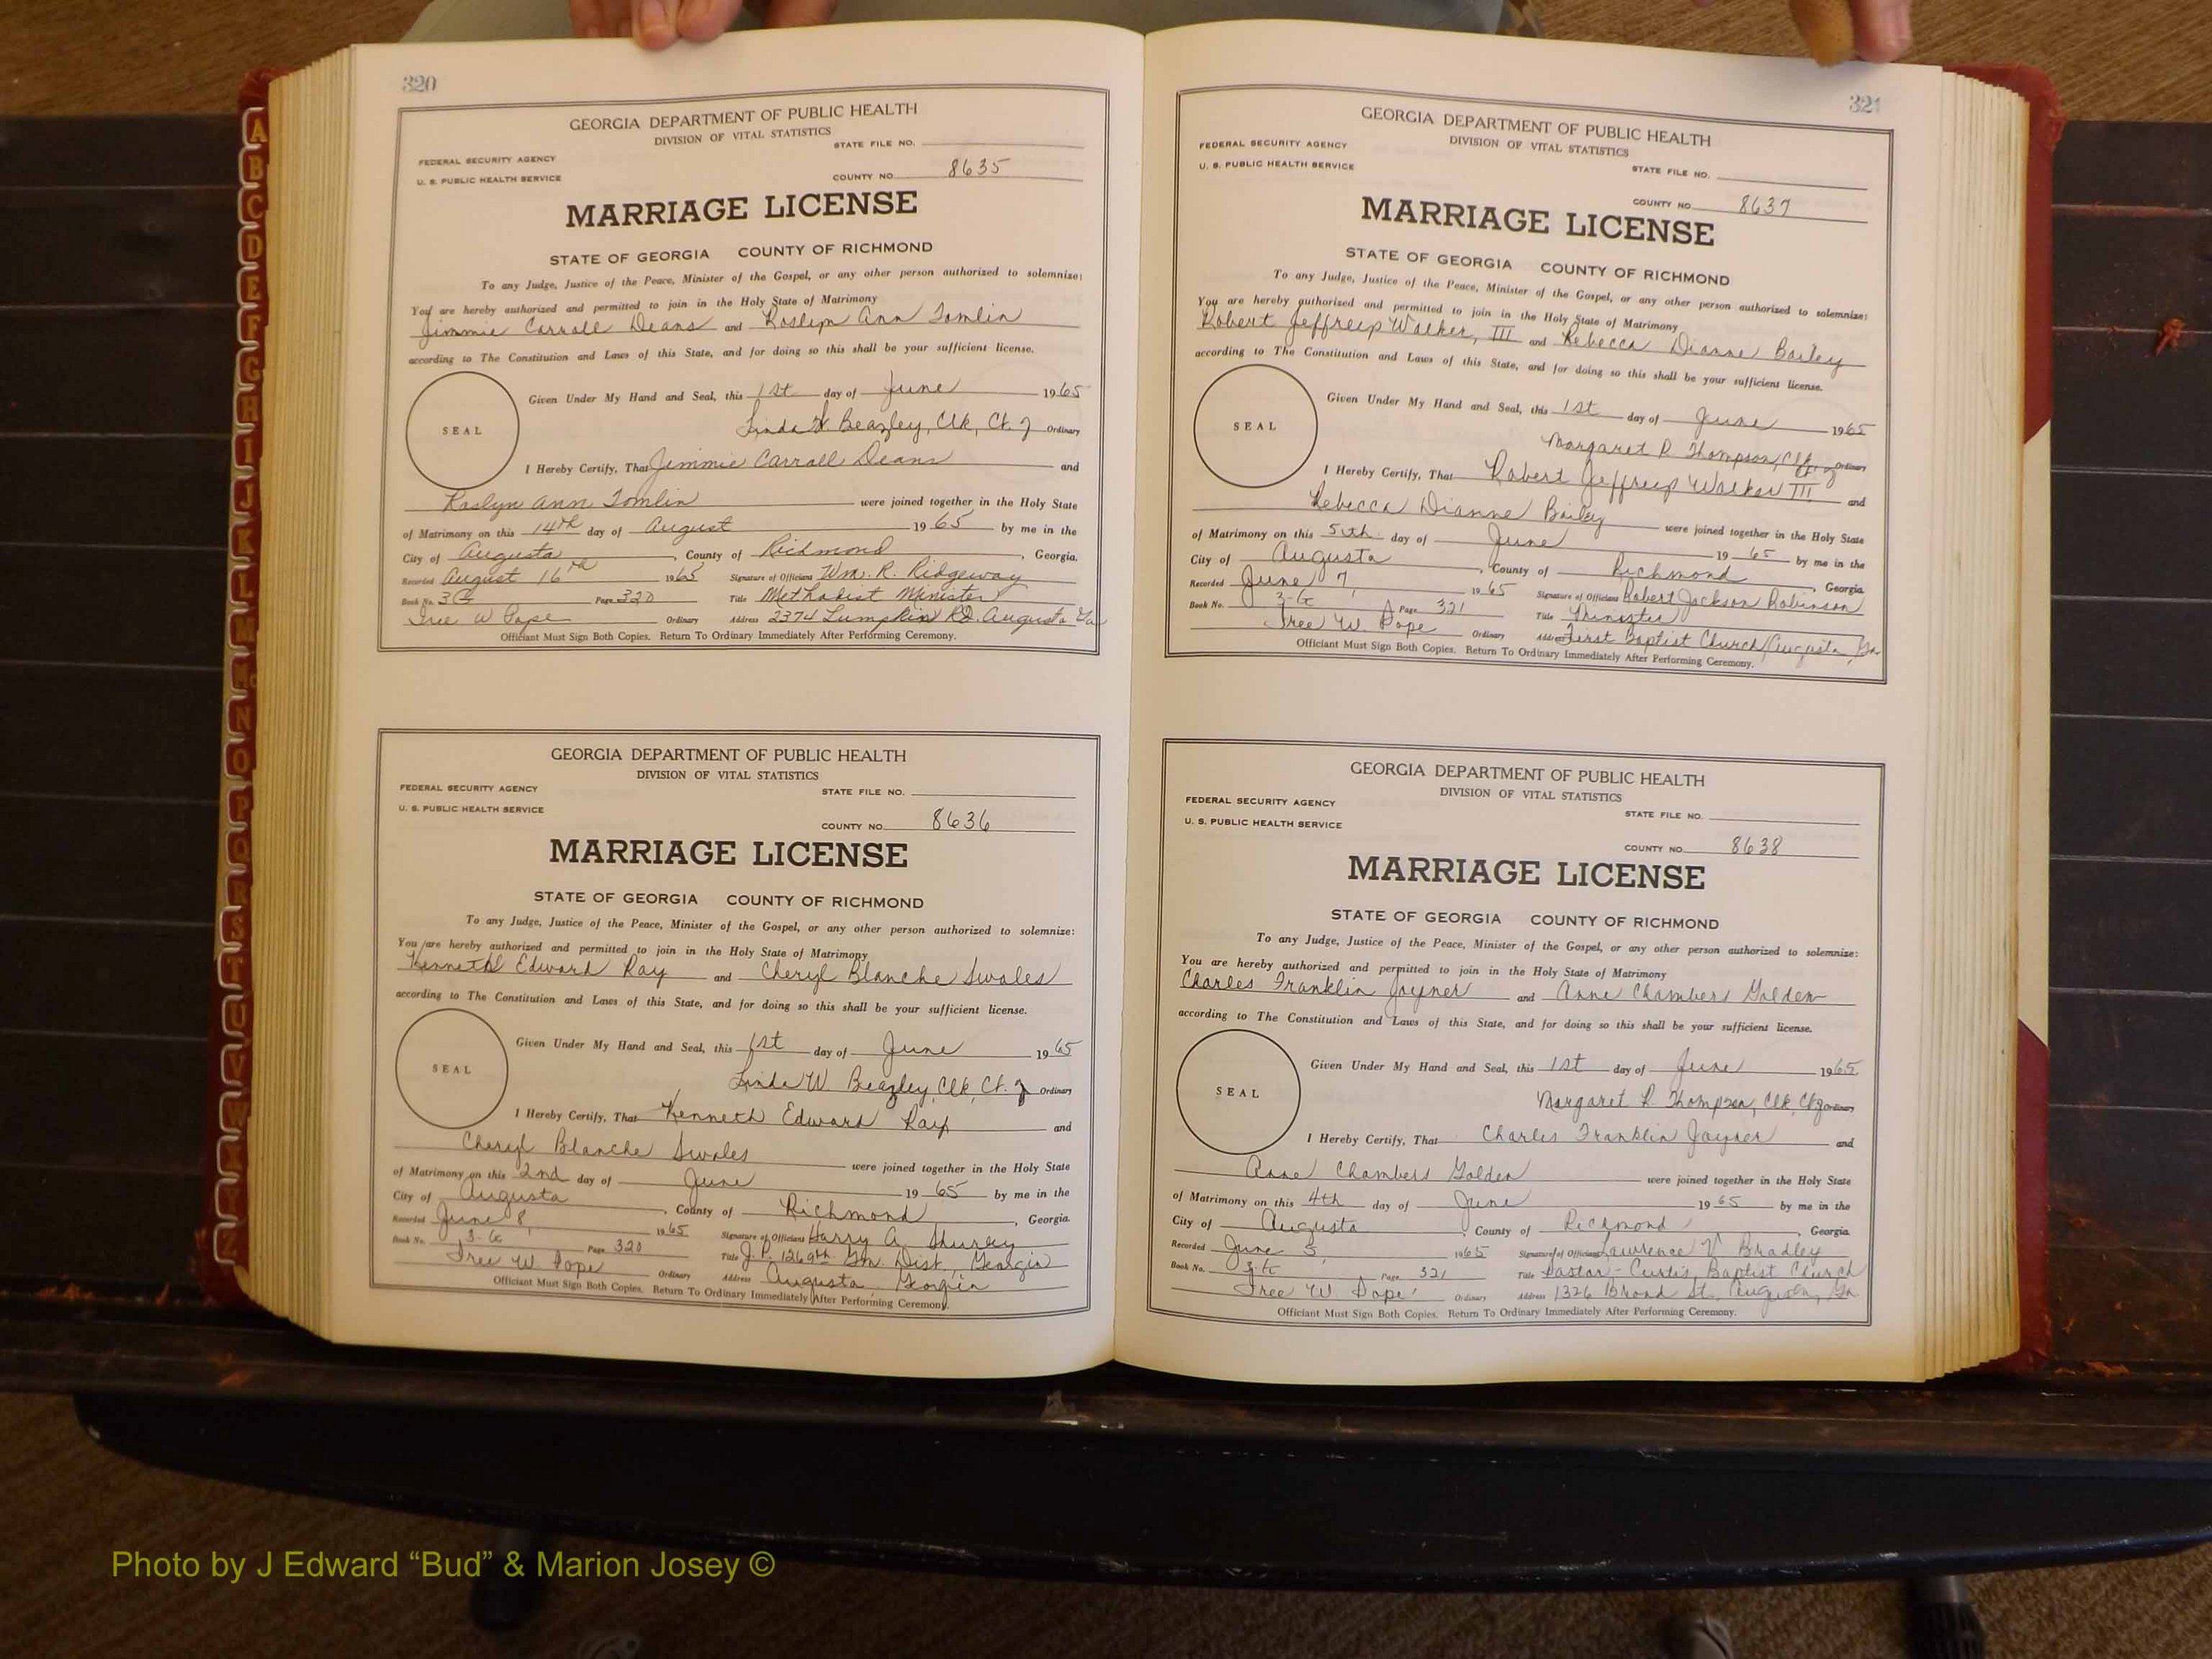 320
GEORGIA DEPARTMENT OF PUBLIC HEALTH
DIVISION OF VITAL STATISTICS
STATE FILE NO.
FEDERAL SECURITY AGENCY
U. S. PUBLIC HEALTH SERVICE
COUNTY NO. 8635
MARRIAGE LICENSE
STATE OF GEORGIA COUNTY OF RICHMOND
To any Judge, Justice of the Peace, Minister of the Gospel, or any other person authorized to solemnize:
You are hereby authorized and permitted to join in the Holy State of Matrimony
Jimmie Carroll Deans and Roslyn Ann Tomlin
according to The Constitution and Laws of this State, and for doing so this shall be your sufficient license.
SEAL
Given Under My Hand and Seal, this 1st day of June 1965
Linda W. Beazley, Clk, Ct. of Ordinary
I Hereby Certify, That Jimmie Carroll Deans and
Roslyn Ann Tomlin were joined together in the Holy State
of Matrimony on this 14th day of August 1965 by me in the
City of Augusta, County of Richmond, Georgia.
Recorded August 16th 1965 Signature of Officiant Wm. R. Ridgeway
Book No. 3G Page 320 Title Methodist Minister
Tree W Pope Ordinary Address 2374 Lumpkin RD. Augusta Ga
Officiant Must Sign Both Copies. Return To Ordinary Immediately After Performing Ceremony.
GEORGIA DEPARTMENT OF PUBLIC HEALTH
DIVISION OF VITAL STATISTICS
FEDERAL SECURITY AGENCY
STATE FILE NO.
U. S. PUBLIC HEALTH SERVICE
COUNTY NO. 8636
MARRIAGE LICENSE
STATE OF GEORGIA COUNTY OF RICHMOND
To any Judge, Justice of the Peace, Minister of the Gospel, or any other person authorized to solemnize:
You are hereby authorized and permitted to join in the Holy State of Matrimony
Kenneth Edward Ray and Cheryl Blanche Swales
according to The Constitution and Laws of this State, and for doing so this shall be your sufficient license.
SEAL
Given Under My Hand and Seal, this 1st day of June 1965
Linda W. Beazley, Clk, Ct. of Ordinary
I Hereby Certify, That Kenneth Edward Ray and
Cheryl Blanche Swales were joined together in the Holy State
of Matrimony on this 2nd day of June 1965 by me in the
City of Augusta, County of Richmond, Georgia.
Recorded June 8, 1965 Signature of Officiant Harry A. Shurley
Book No. 3-G Page 320 Title J. P. 1269th Gm. Dist., Georgia
Tree W Pope Ordinary Address Augusta, Georgia
Officiant Must Sign Both Copies. Return To Ordinary Immediately After Performing Ceremony.
321
GEORGIA DEPARTMENT OF PUBLIC HEALTH
DIVISION OF VITAL STATISTICS
FEDERAL SECURITY AGENCY
U. S. PUBLIC HEALTH SERVICE
STATE FILE NO.
COUNTY NO. 8637
MARRIAGE LICENSE
STATE OF GEORGIA COUNTY OF RICHMOND
To any Judge, Justice of the Peace, Minister of the Gospel, or any other person authorized to solemnize:
You are hereby authorized and permitted to join in the Holy State of Matrimony
Robert Jeffreep Walker, III and Rebecca Dianne Bailey
according to The Constitution and Laws of this State, and for doing so this shall be your sufficient license.
SEAL
Given Under My Hand and Seal, this 1st day of June 1965
Margaret R. Thompson, Clk, Ct. of Ordinary
I Hereby Certify, That Robert Jeffreep Walker III and
Rebecca Dianne Bailey were joined together in the Holy State
of Matrimony on this 5th day of June 1965 by me in the
City of Augusta, County of Richmond, Georgia.
Recorded June 7, 1965 Signature of Officiant Robert Jackson Robinson
Book No. 3-G Page 321 Title Minister
Tree W. Pope Ordinary Address First Baptist Church, Augusta, Ga.
Officiant Must Sign Both Copies. Return To Ordinary Immediately After Performing Ceremony.
GEORGIA DEPARTMENT OF PUBLIC HEALTH
DIVISION OF VITAL STATISTICS
FEDERAL SECURITY AGENCY
STATE FILE NO.
U. S. PUBLIC HEALTH SERVICE
COUNTY NO. 8638
MARRIAGE LICENSE
STATE OF GEORGIA COUNTY OF RICHMOND
To any Judge, Justice of the Peace, Minister of the Gospel, or any other person authorized to solemnize:
You are hereby authorized and permitted to join in the Holy State of Matrimony
Charles Franklin Joyner and Anne Chambers Golden
according to The Constitution and Laws of this State, and for doing so this shall be your sufficient license.
SEAL
Given Under My Hand and Seal, this 1st day of June 1965
Margaret R. Thompson, Clk, Ct of Ordinary
I Hereby Certify, That Charles Franklin Joyner and
Anne Chambers Golden were joined together in the Holy State
of Matrimony on this 4th day of June 1965 by me in the
City of Augusta, County of Richmond, Georgia.
Recorded June 5, 1965 Signature of Officiant Lawrence V. Bradley
Book No. 3-G Page 321 Title Pastor - Curtis Baptist Church
Tree W Pope Ordinary Address 1326 Broad St., Augusta, Ga
Officiant Must Sign Both Copies. Return To Ordinary Immediately After Performing Ceremony.
A
B
C
D
E
F
G
H
I
J
K
L
M
Mc
N
O
P
Q
R
S
T
U
V
W
X
Y
Z
Photo by J Edward “Bud” & Marion Josey ©